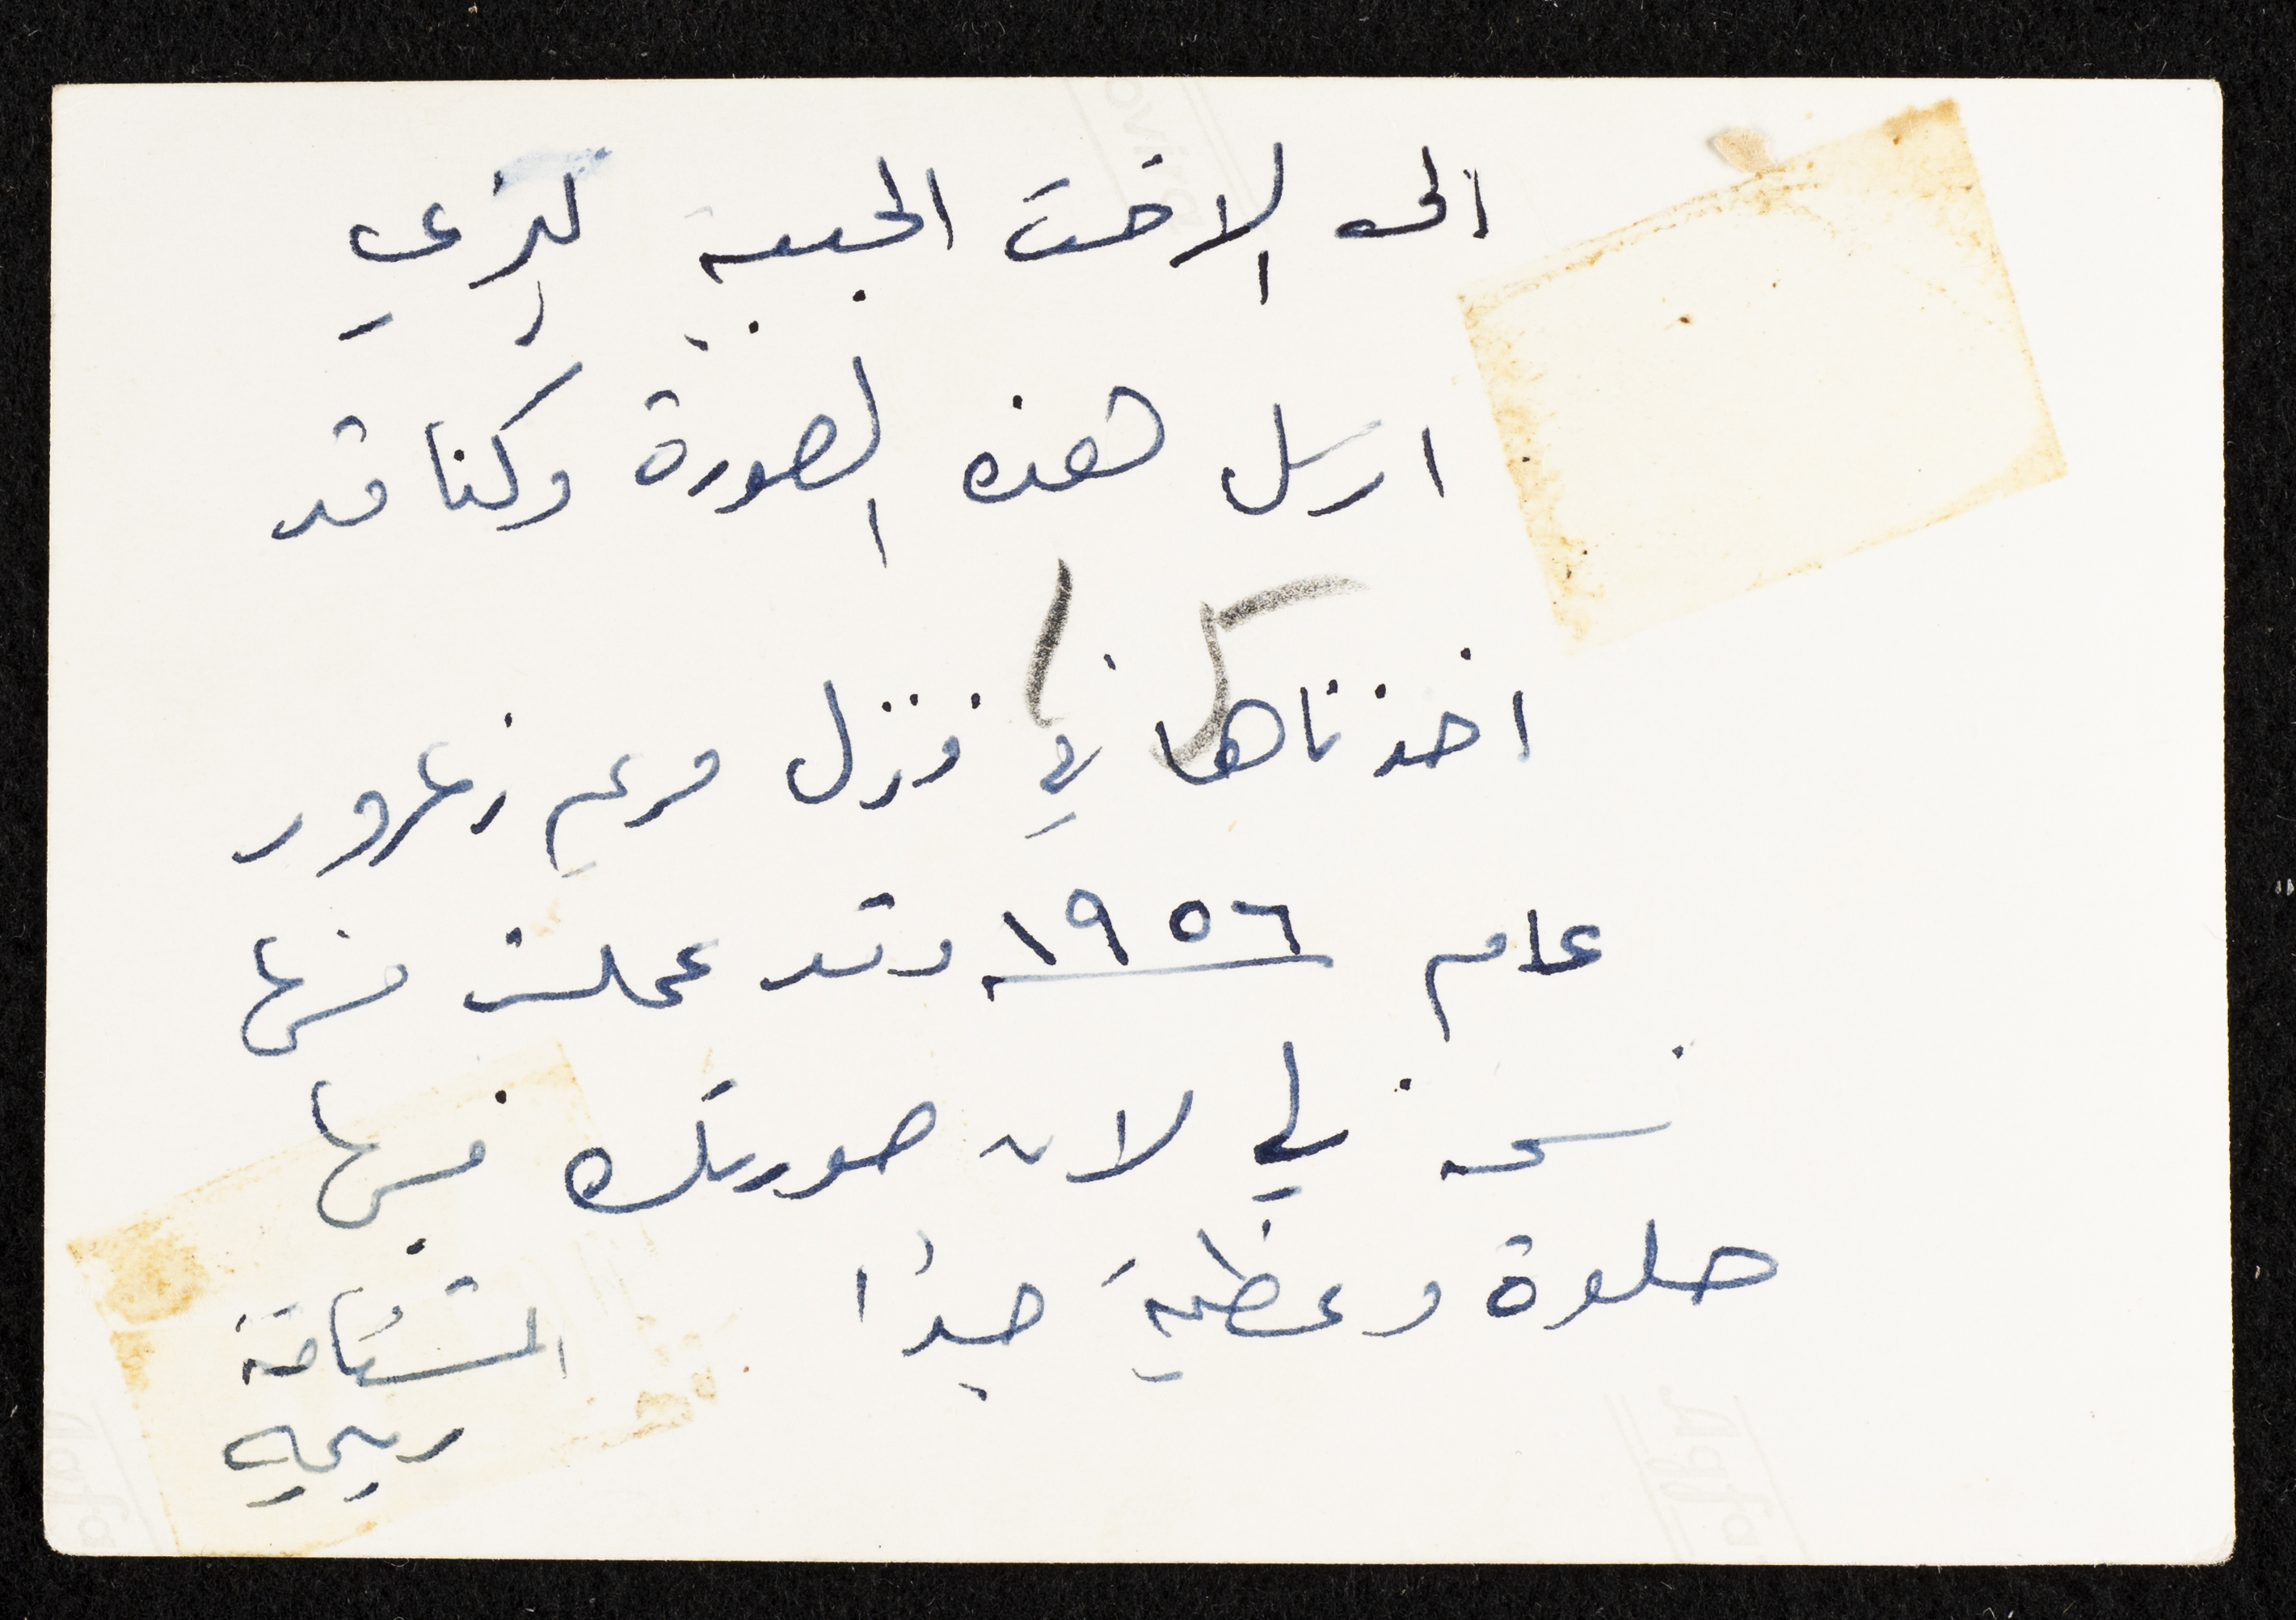 الى الاخت الحبيبة ليزي
ارسل هذه الصورة وكنا قد
اخذناها في منزل مريم زعرور
عام ١٩٥٦ وقد عملت منها
نسخة لي لان صورتك فيها
حلوة وعظيمة جدًا
المشتاقة